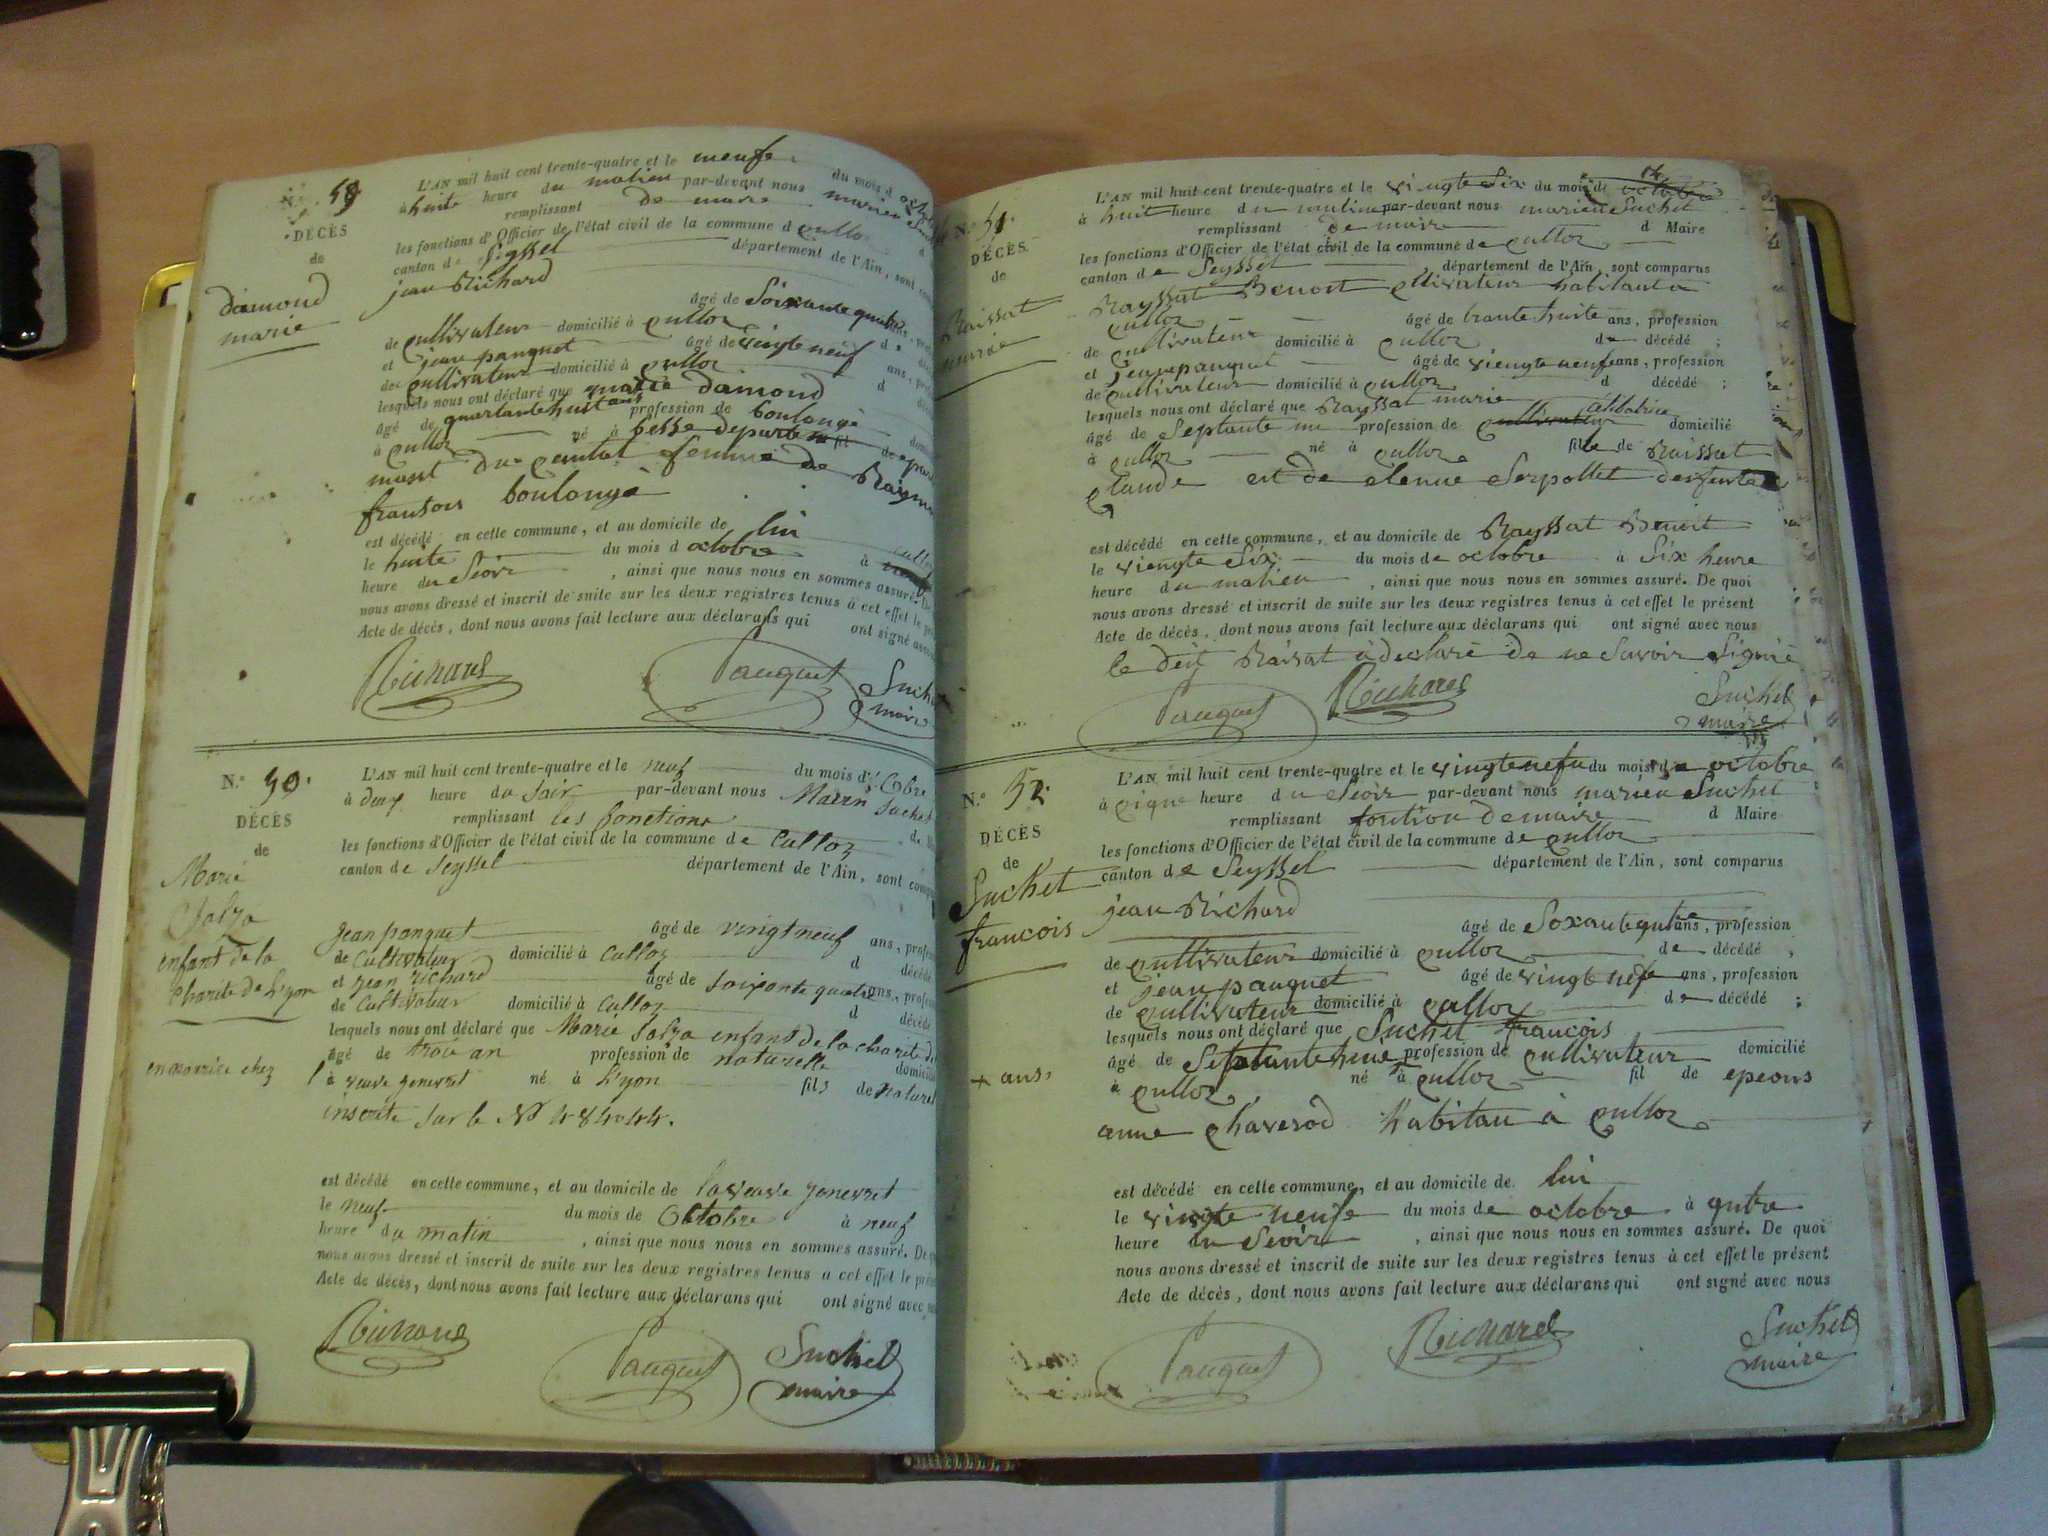 N.°
DÉCÈS
de
damond
marie
L'AN mil huit cent trente-quatre et le neufe du mois d
à huite heure du matieu par-devant nous marieu
remplissant de maire
les fonctions d'Officier de l'état civil de la commune d culloz
canton de Seyssel département de l'Ain, sont
jean Richard
âgé de Soixante quatre
de cultivateur domicilié à culloz
et jean panquet âgé de vingte neuf ans,
de cultivateur domicilié à culloz d
lesquels nous ont déclaré que marie damond
âgé de quarlante huit ans profession de boulongé
à culloz né à besse departe
mant du cantal femme de Raymu
fransois boulongé
est décédé en cette commune, et au domicile de lui
le huite du mois d octobre à
heure du Seoir, ainsi que nous nous en sommes assuré. De
nous avons dressé et inscrit de suite sur les deux registres tenus à cet effet le
Acte de décès, dont nous avons fait lecture aux déclarans qui ont signé avec
Richard
Panquet
Such
maire
N.° 50.
DÉCÈS
de
Marie
Jalza
enfant de la
charité de Lyon
en nourrice chez
L'AN mil huit cent trente-quatre et le neuf du mois d' 8bre
à deux heure du soir par-devant nous Marin Suchet
remplissant les fonctions
les fonctions d'Officier de l'état civil de la commune de Culloz
canton de Seyssel département de l'Ain, sont
Jean panquet âgé de vingt neuf ans,
de Cultivateur domicilié à Culloz d décédé
et Jean Richard âgé de soixante quatre ans,
de Cultivateur domicilié à Culloz d décédé
lesquels nous ont déclaré que Marie Jalza enfant de la charité de
âgé de trois an profession de naturelle
à veuve genevret né à Lyon fils de naturel
inscrite sur le N° 48404.
est décédé en cette commune, et au domicile de la veuve genevret
le neuf du mois de Octobre à neuf
heure du matin, ainsi que nous nous en sommes assuré. De
nous avons dressé et inscrit de suite sur les deux registres tenus a cet effet le
Acte de décès, dont nous avons fait lecture aux déclarans qui ont signé avec
Richard
Panquet
Suchet
maire
N.° 51.
DÉCÈS
de
Raissat
marie
L'AN mil huit cent trente-quatre et le viengte Six du mois de octobre
à huit heure du matieu par-devant nous marieu Suchet
remplissant de maire d Maire
les fonctions d'Officier de l'état civil de la commune de culloz
canton de Seyssel département de l'Ain, sont comparus
Rayssat Benoit cultivateur habitant a
culloz âgé de trante huite ans, profession
de cultivateur domicilié à culloz de décédé ;
et jean panquet âgé de viengte neufe ans, profession
de cultivateur domicilié à culloz d décédé ;
lesquels nous ont déclaré que Rayssat marie
âgé de Septante un profession de cultivateur domicilié
à culloz né à culloz fille de Raissat
claude est de elenne Serpollet
est décédé en cette commune, et au domicile de Rayssat Benoit
le viengte Six du mois de octobre à Six heure
heure du matieu, ainsi que nous nous en sommes assuré. De quoi
nous avons dressé et inscrit de suite sur les deux registres tenus à cet effet le présent
Acte de décès, dont nous avons fait lecture aux déclarans qui ont signé avec nous
le dit Raisat à declaré de ne Savoir Signié
Panquet
Richard
Suchet
maire
N.° 52.
DÉCÈS
de
Suchet
francois
+ ans,
L'AN mil huit cent trente-quatre et le vingte nefu du mois de octobre
à cique heure du Seoir par-devant nous marieu Suchet
remplissant fontion de maire d Maire
les fonctions d'Officier de l'état civil de la commune de culloz
canton de Seyssel département de l'Ain, sont comparus
jean Richard
âgé de Soxante qutre ans, profession
de cultivateur domicilié à culloz de décédé,
et jean panquet âgé de vingt nefe ans, profession
de cultivateur domicilié à culloz de décédé ;
lesquels nous ont déclaré que Suchet francois
âgé de profession de cultivateur domicilié
à culloz né à culloz fil de epeous
anne chaverod habitau à culloz
est décédé en cette commune, et au domicile de lui
le vingte neufe du mois de octobre à qutre
heure du Seoir, ainsi que nous nous en sommes assuré. De quoi
nous avons dressé et inscrit de suite sur les deux registres tenus à cet effet le présent
Acte de décès, dont nous avons fait lecture aux déclarans qui ont signé avec nous
Panquet
Richard
Suchet
maire